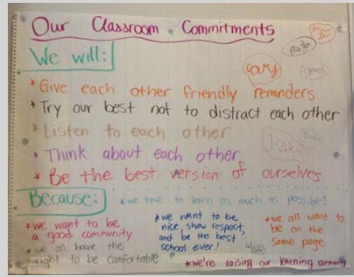 Our Classroom Commitments
We will:
* Give each other friendly reminders
* Try our best not to distract each other
* Listen to each other
* Think about each other
* Be the best version of ourselves
Because:
* we have to learn as much as possible!
* we want to be
a good community
* we want to be
nice, show respect,
and be the best
school ever!
* we all want to
be on the
same page
* we all have the
right to be comfortable
* we're taking our learning